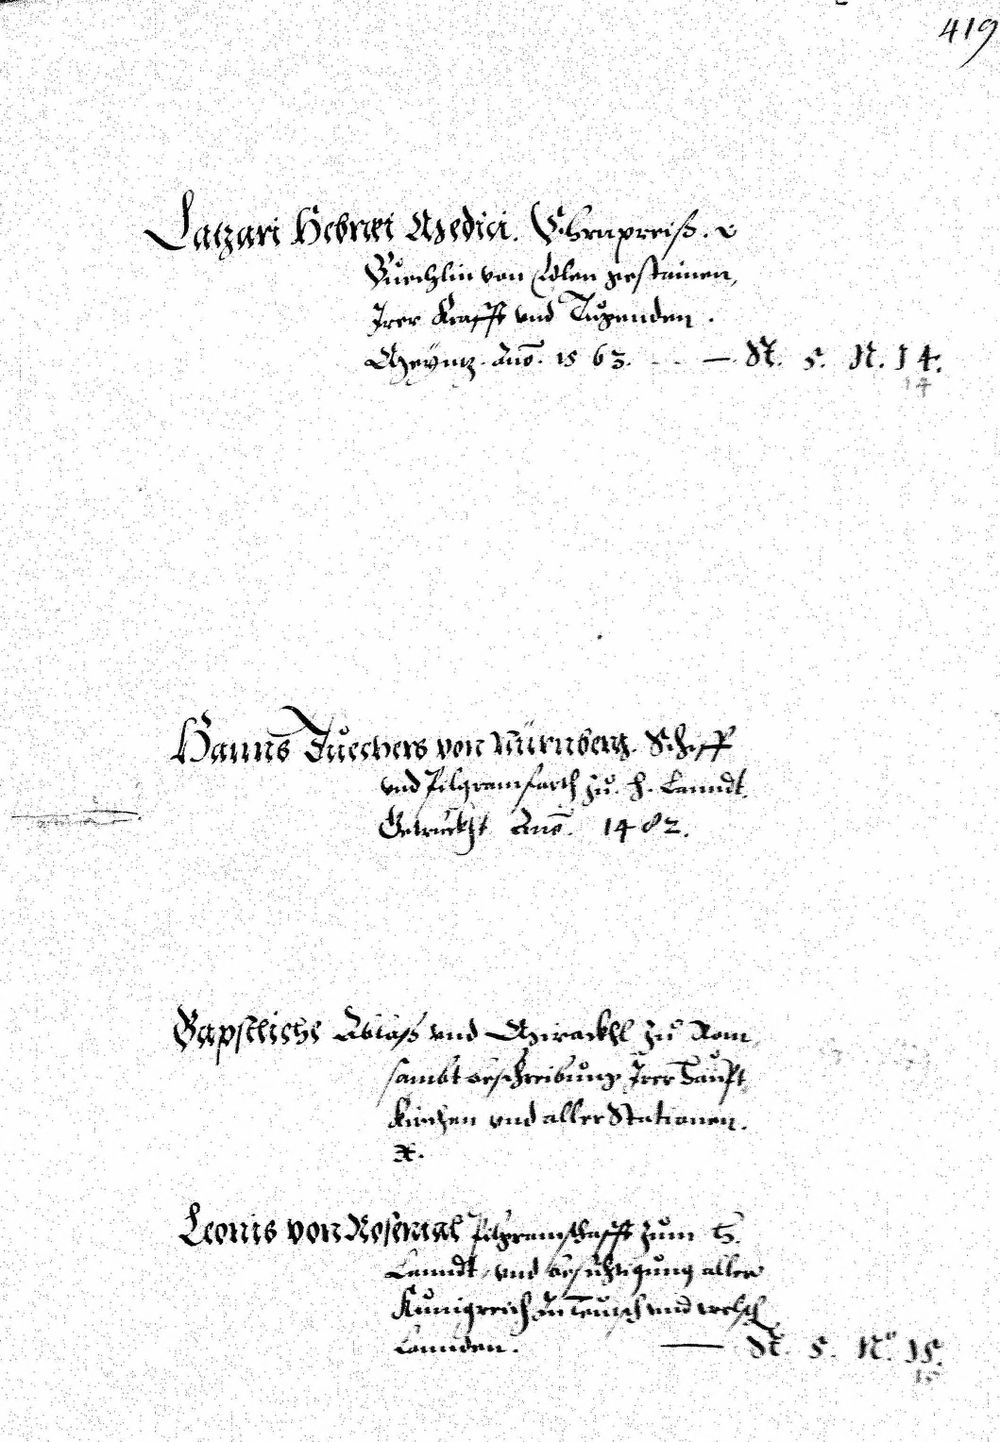 419
Latzari Hebraei Medici. Ehrnpreiß. v
Buechlin von Edlen gestainen,
Irer Krafft vnd Tugenden.
Meyntz. Ano. 1563. — St. 5. N. 14.
14
Hanns Tuechers von Nürnberg. Schiff
vnd Pilgramfarth zu. h. Lanndt.
Getruckht Ano. 1482.
Bapstliche Ablaß vnd Mirackhl zu Rom,
sambt beschreibung Irer Haupt
Kirchen vnd aller Stationen.
Leonis von Rosental Pilgramschafft zum H.
Lanndt, vnd besichtigung aller
Kunigreich in Teutsch vnd welsch
Lannden. — St. 5. No. 15.
15